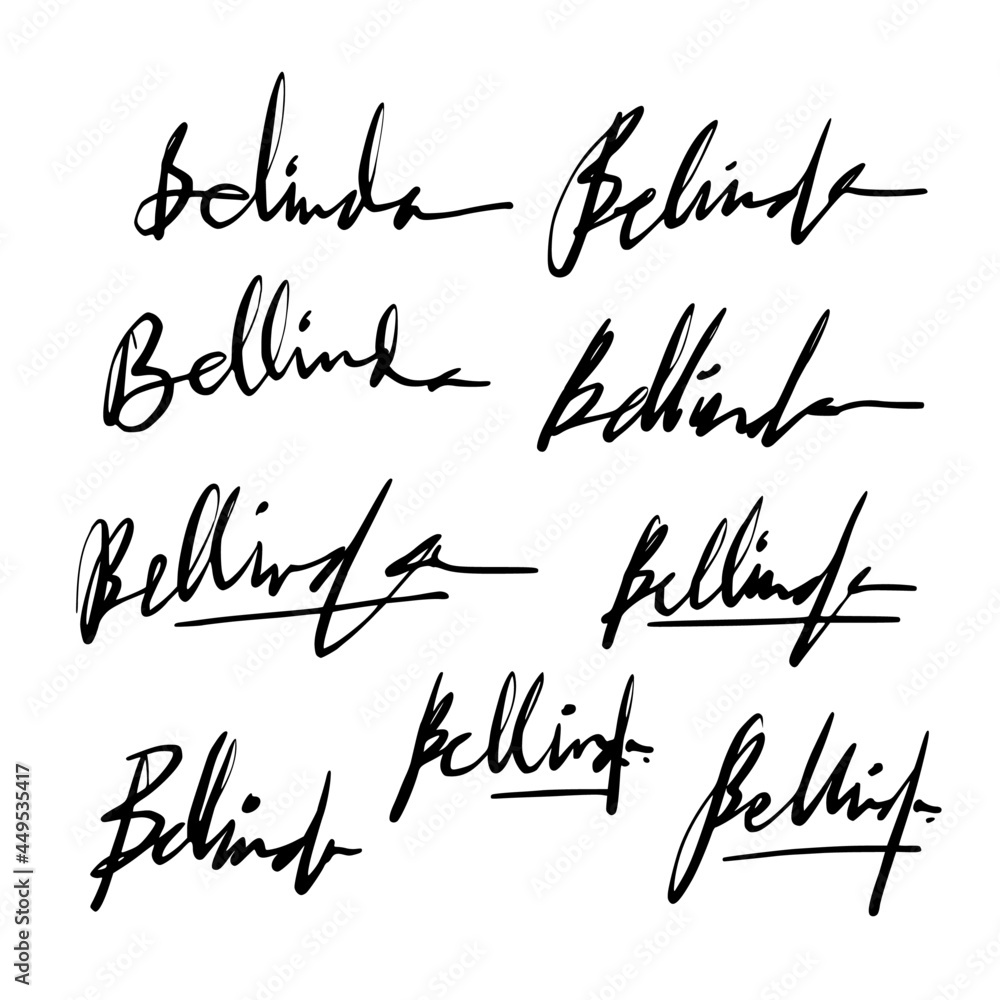 Belinda Belinda
Bellinda Bellinda
Bellinda Bellinda
Bellinda.
Bellinda Bellinda.
Adobe Stock | #449535417